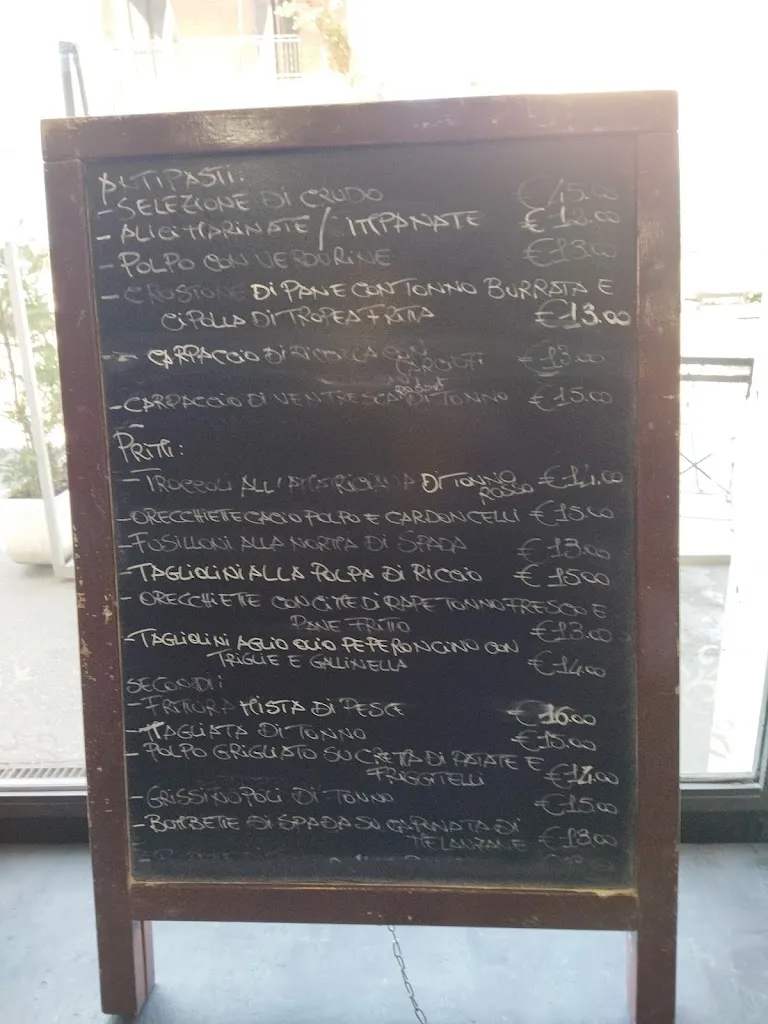 ANTIPASTI:
- SELEZIONE DI CRUDO €45.00
- ALICI MARINATE / IMPANATE €12.00
- POLPO CON VERDURINE €13.00
- CROSTONE DI PANE CON TONNO BURRATA E
CIPOLLA DI TROPEA FRITTA €13.00
- CARPACCIO DI CON CARCIOFI €13.00
- CARPACCIO DI VENTRESCA DI TONNO €15.00
PRIMI:
- TROCCOLI ALL'AMATRICIANA DI TONNO €14.00
ROSSO
- ORECCHIETTE CACIO POLPO E CARDONCELLI €15.00
- FUSILLONI ALLA NORMA DI SPADA €13.00
- TAGLIOLINI ALLA POLPA DI RICCIO €15.00
- ORECCHIETTE CON CIME DI RAPE TONNO FRESCO E
PANE FRITTO €13.00
- TAGLIOLINI AGLIO OLIO PEPERONCINO CON
TRIGLIE E GALLINELLA €14.00
SECONDI:
- FRITTURA MISTA DI PESCE €16.00
- TAGLIATA DI TONNO €15.00
- POLPO GRIGLIATO SU CREMA DI PATATE E
FRIGGITELLI €14.00
- GRISSINOPOLI DI TONNO €15.00
- BOMBETTE DI SPADA SU CAPONATA DI
MELANZANE €13.00